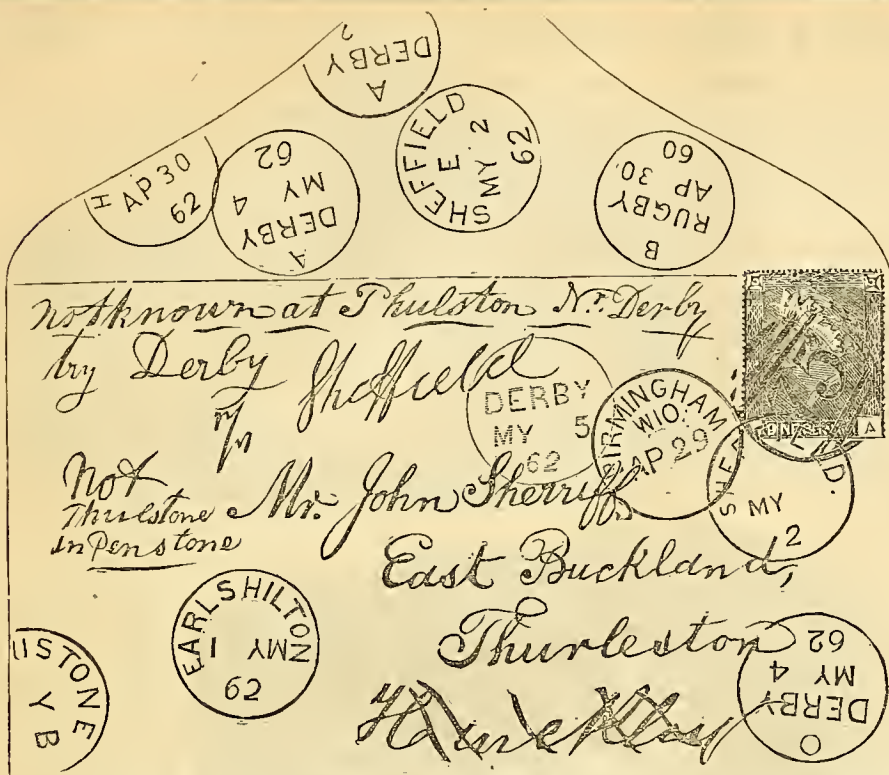 A
DERBY
2
SHEFFIELD
E
MY 2
62
H
AP 30
62
A
DERBY
MY 4
62
B
RUGBY
AP 30
60
not known at Phulston Nr. Derby
try Derby
Sheffield
DERBY
MY 5
62
BIRMINGHAM
W10
AP 29
MY
2
Not
Thulstone
in Penstone
Mr. John Sherriff,
East Buckland,
Thurleston
EARLSHILTON
1 MY
62
USTONE
Y B
O
DERBY
MY 4
62